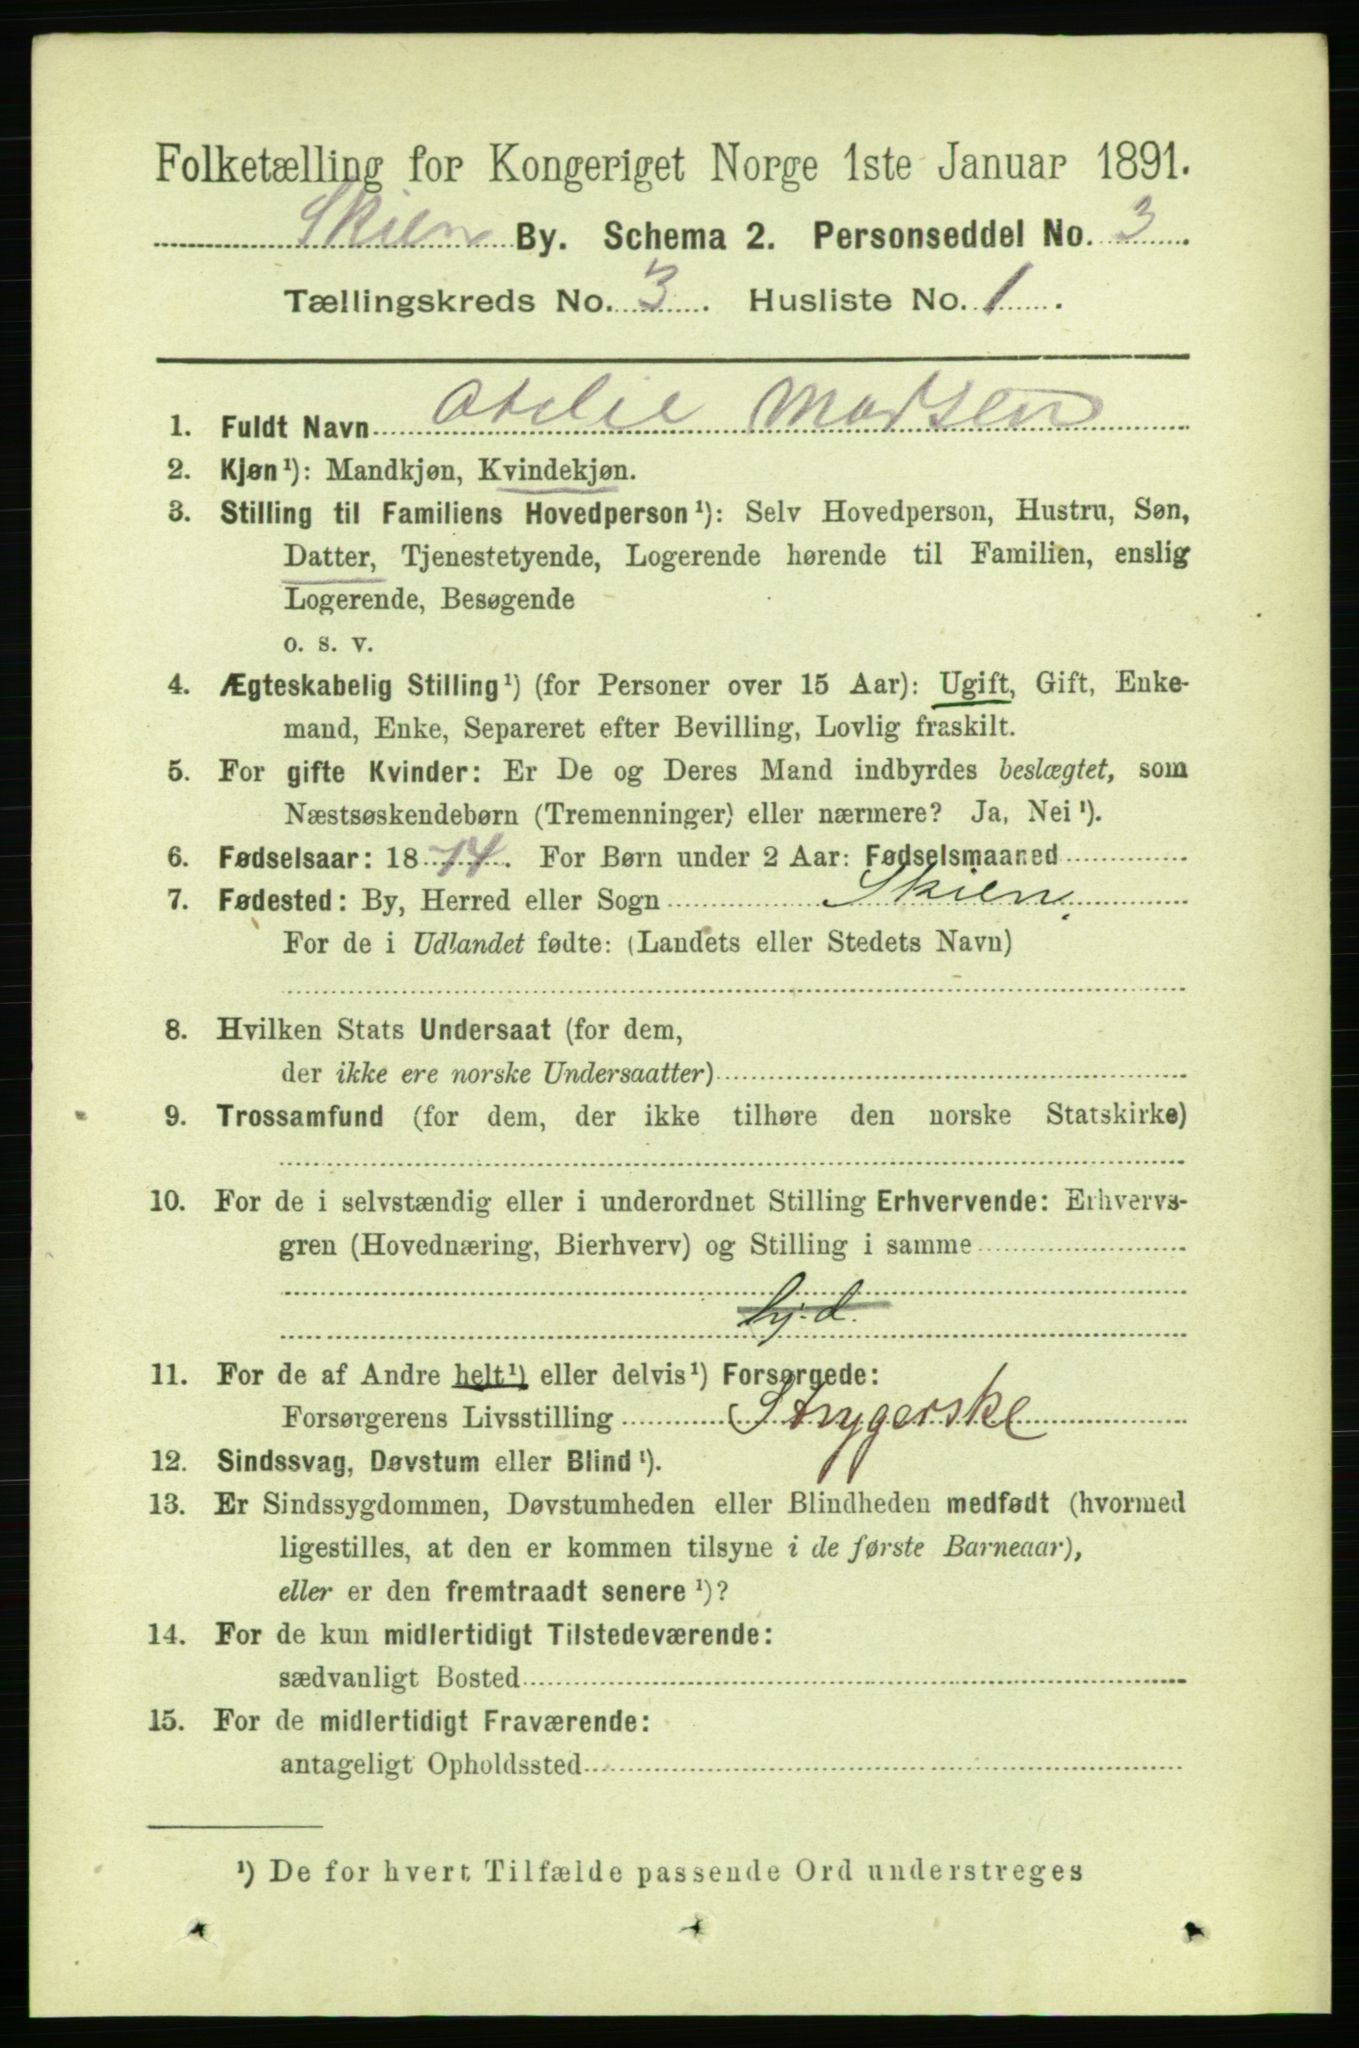 Folketælling for Kongeriget Norge 1ste Januar 1891.
Skien By. Schema 2. Personseddel No. 3.
Tællingskreds No. 3. Husliste No. 1.
1. Fuldt Navn Otelie Madsen
2. Kjøn¹): Mandkjøn, Kvindekjøn.
3. Stilling til Familiens Hovedperson¹): Selv Hovedperson, Hustru, Søn,
Datter, Tjenestetyende, Logerende hørende til Familien, enslig
Logerende, Besøgende
o. s. v.
4. Ægteskabelig Stilling¹) (for Personer over 15 Aar): Ugift, Gift, Enke-
mand, Enke, Separeret efter Bevilling, Lovlig fraskilt.
5. For gifte Kvinder: Er De og Deres Mand indbyrdes beslægtet, som
Næstsøskendebørn (Tremenninger) eller nærmere? Ja, Nei¹).
6. Fødselsaar: 1874. For Børn under 2 Aar: Fødselsmaaned
7. Fødested: By, Herred eller Sogn Skien.
For de i Udlandet fødte: (Landets eller Stedets Navn)
8. Hvilken Stats Undersaat (for dem,
der ikke ere norske Undersaatter)
9. Trossamfund (for dem, der ikke tilhøre den norske Statskirke)
10. For de i selvstændig eller i underordnet Stilling Erhvervende: Erhvervs-
gren (Hovednæring, Bierhverv) og Stilling i samme
hj. d.
11. For de af Andre helt¹) eller delvis¹) Forsørgede:
Forsørgerens Livsstilling Strygerske
12. Sindssvag, Døvstum eller Blind¹).
13. Er Sindssygdommen, Døvstumheden eller Blindheden medfødt (hvormed
ligestilles, at den er kommen tilsyne i de første Barneaar),
eller er den fremtraadt senere¹)?
14. For de kun midlertidigt Tilstedeværende:
sædvanligt Bosted
15. For de midlertidigt Fraværende:
antageligt Opholdssted
¹) De for hvert Tilfælde passende Ord understreges